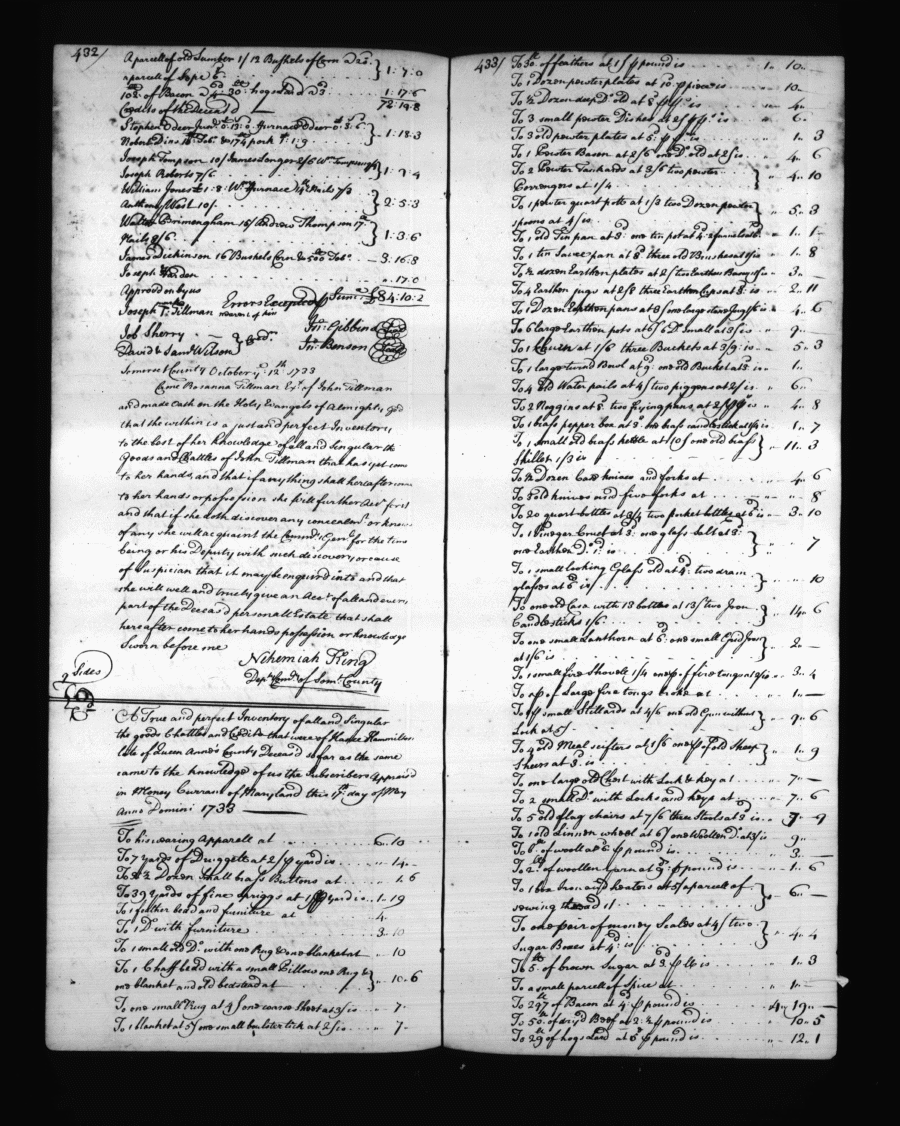 432/
A parcell of old Lumber 1/ 12 Bushels of Corn @ 22d
a parcell of Sope 6d } 1:7:0
102lb of Bacon @ 4d 30lb hogs lard @ 3d 1:17:6
Credits of the Deceasd 72:19:8
Stephen Odeor Junr 0:13:0 Furnace Odeor 0:8:6
Robert Dins Tobo & 174 pork 1:1:9 } 1:18:3
Joseph Tompson 10/ James Conger 2/6 Wm
Joseph Roberts 7/6
William Jones £1:8: Wm Furnace Nails 7/3
Anthony West 10/ } 2:5:3
Walter Brimengham 15/ Andrew Thompson 17d
Nails 8/6 } 1:3:6
James Dickinson 16 Bushels Corn & 500 Tobo 3:16:8
Joseph Varden " 17:0
Approvd on by us Errors Excepted Sum £84:10:2
Joseph T Tillman nearest of kin
Job Sherry
David & Saml Wilson } Cred.
Jno: Gibbins Seal
Jno: Benson Seal
Somerset County October ye 12th 1733
Came Rosanna Tillman Exx of John Tillman
and made Oath on the Holy Evangels of Almighty god
that the within is a just and perfect Inventory
to the best of her Knowledge of all and Singular the
Goods and Chattles of John Tillman that has yet come
to her hands, and that if any thing shall hereafter come
to her hands or possession she will further
and that if she doth discover any concealmt or know
of any she will acquaint the Commry Genl for the time
being or his Deputy with such discovery or cause
of Suspician that it may be enquird into and that
she will well and truely give an Acct of all and every
part of the Deceasd personall Estate that shall
hereafter come to her hands possession or Knowledge
Sworn before me
Nehemiah King
Depty Comry of Som: County
9 Sides
A True and perfect Inventory of all and Singular
the goods Chattles and Credits that were of
late of Queen Anne's County Deceasd so far as the same
came to the knowledge of us the Subscribers Appraisd
in Money Currant of Maryland this 17th day of May
Anno Domini 1733
To his wearing Apparell at 6.. 10
To 7 yards of Druggett at 2/ p yard is " 14 —
To 2½ Dozen small brass Buttons at " 1.. 6
To 39 yards of fine spriggs at 1/ p yard is 1.. 19
To 1 feather bead and furniture at 4..
To 1 Do with furniture 3.. 10
To 1 small old Do. with one Rug & one blanket at " 10
To 1 Chaff bead with a small Pillow one Rug &
one blanket and old bedstead at } " 10.. 6
To one small Rug at 4/ one coarse Sheet at 3/ is " 7..
To 1 blanket at 5/ one small boulster tick at 2/ is " 7..
433/
To 30lb of feathers at 1/ p pound is 1.. 10..
To 1 Dozen pewter plates at 10d p piece is " 10..
To ½ Dozen deep Do old at 8d p ps is " 4..
To 3 small pewter Dishes at 2/ p ps is " 6..
To 3 old pewter plates at 5d p ps is " 1.. 3
To 1 Pewter Bason at 2/6 one Do. old at 2/ is " 4.. 6
To 2 Pewter Tankards at 3/6 two pewter
Porrengers at 1/4 } " 4.. 10
To 1 pewter quart pott at 1/3 two Dozen pewter
spoons at 4/ is } " 5.. 3
To 1 old Tin pan at 8d: one tin pot at 4d " 1.. 1
To 1 tin Sauce pan at 8d three old Brushes at 1/ is " 1.. 8
To ½ dozen Earthen plates at 2/ two Earthen Basons 1/ is " 3.. —
To 4 Earthen jugs at 2/8 three Earthen Cups at 3d is " 2.. 11
To 1 Dozen Earthen pans at 3/ one large stone Jug 1/6 is " 4.. 6
To 6 large Earthen pots at 6/ 6 Do Small at 3/ is " 9..
To 1 Churn at 1/6 three Buckets at 3/9: is " 5.. 3
To 1 large turnd Bowl at 9d: one old Bucket at 3d. is " 1..
To 4 old Water pails at 4/ two piggens at 2/ is " 6..
To 2 Noggins at 8d. two frying pans at 2/ p ps is " 4.. 8
To 1 brass pepper box at 3d. one brass candlestick at 1/4 is " 1.. 7
To 1 small old brass kettle at 10/ one old brass
Skillet 1/3 is } " 11.. 3
To ½ Dozen Case knives and forks at " 4.. 6
To 3 old knives and five forks at " " 8
To 20 quart bottles at 3/4 two pocket bottles at 6d is " 3.. 10
To 1 Vinegar Cruet at 3d: one glass Salt at 3d:
one Earthen Do. 1d: is } " " 7
To 1 small looking Glass old at 4d: two dram
glasses at 6d is } " " 10
To one old Case with 13 bottles at 13/ two Iron
Candlesticks 1/6 } " 14.. 6
To one small Lanthorn at 6d: one small Grid Iron
at 1/6 is } " 2.. —
To 1 small fire Shovell 1/4 one pr of fire tongs at 2/ is " 3.. 4
To a pr of Large fire tongs broke at " 1.. —
To 1 pr small Stillards at 4/6 one old Gun without
Lock at 5/ } " 9.. 6
To 4 old Meal sifters at 1/6 one pr of old Sheep
Sheers at 3d. is } " 1.. 9
To one large old Chest with Lock & key at " 7.. —
To 2 small Do. with Locks and keys at " 7.. 6
To 5 old flag chairs at 7/6 three Stools at 3d is " 7.. 9
To 1 old Linnen wheel at 6/ one Woollen Do. at 3/ is " 9..
To 6lb: of wooll at 6d p pound is " 3.. —
To 2lb: of woollen yarn at 9d: p pound is " 1.. 6
To 1 box Iron and heaters at 5/ a parcell of
sewing thread 1/ } " 6.. —
To one pair of money Scales at 4/ two
Sugar Boxes at 4d: is } " 4.. 4
To 5lb of brown Sugar at 3d. p lb is " 1.. 3
To a small parcel of Spice at " 1.. —
To 297lb of Bacon at 4d: p pound is 4.. 19.. —
To 50lb. of dryd Beef at 2½d p pound is " 10.. 5
To 29lb of hogs Lard at 5d p pound is " 12.. 1